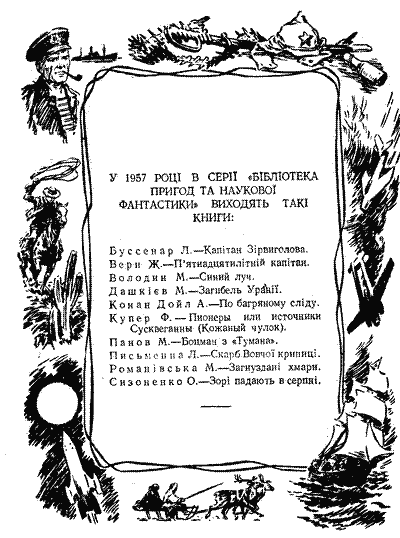 У 1957 РОЦІ В СЕРІЇ «БІБЛІОТЕКА
ПРИГОД ТА НАУКОВОЇ
ФАНТАСТИКИ» ВИХОДЯТЬ ТАКІ
КНИГИ:
Буссенар Л.—Капітан Зірвиголова.
Верн Ж.—П'ятнадцятилітній капітан.
Володин М.—Синий луч.
Дашкієв М.—Загибель Уранії.
Конан Дойл А.—По багряному сліду.
Купер Ф.—Пионеры или источники
Сускveганны (Кожаный чулок).
Панов М.—Боцман з «Тумана».
Письменна Л.—Скарб Вовчої криниці.
Романівська М.—Загнуздані хмари.
Сизоненко О.—Зорі падають в серпні.